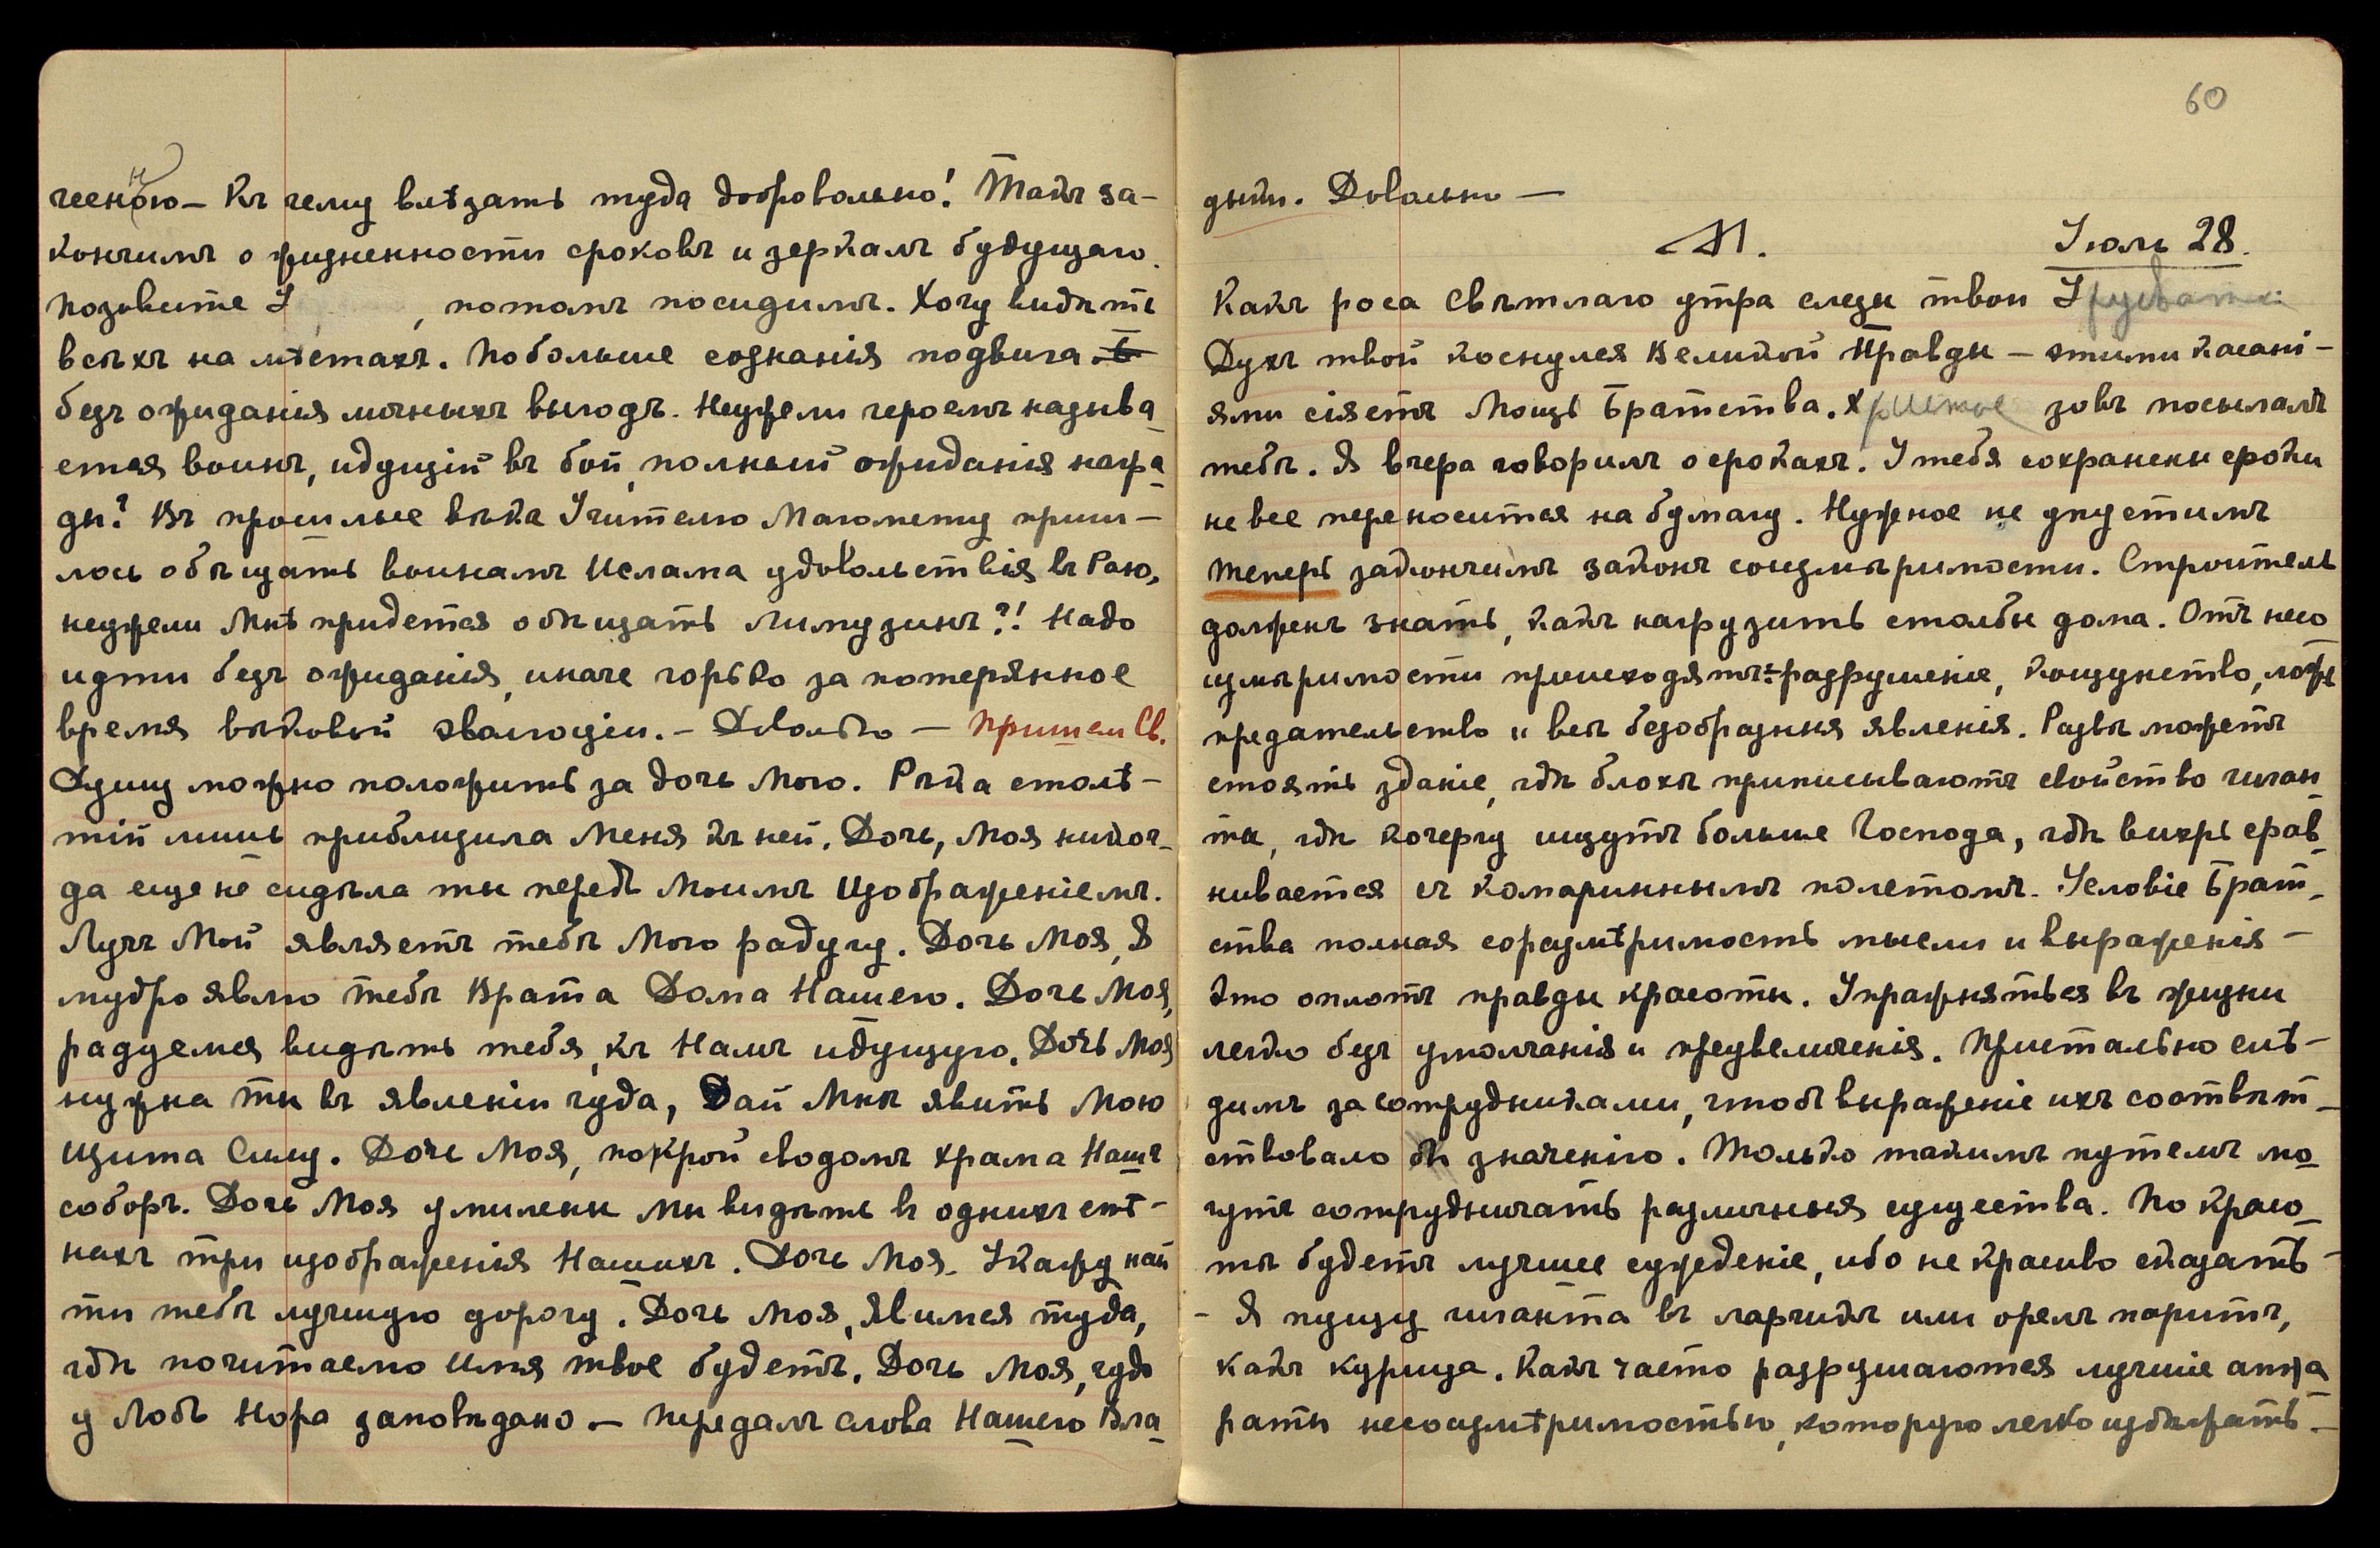 геенною – Къ чему влѣзать туда добровольно! Такъ за-
кончимъ о жизненности сроковъ и зеркалъ будущаго.
Позовите У , потомъ посидимъ. Хочу видѣть
всѣхъ на мѣстахъ. Побольше сознанія подвига
безъ ожиданія личныхъ выгодъ. Неужели героемъ называ
ется воинъ, идущій въ бой, полный ожиданія награ-
ды? Въ прошлые вѣка Учителю Магомету приш-
лось обѣщать воинамъ Ислама удовольствія въ Раю,
неужели Мнѣ придется обѣщать лимузинъ?! Надо
идти безъ ожиданія, иначе горько за потерянное
время вѣковой эволюціи. – Довольно – Пришел Св.
Душу можно положить за дочь Мою. Рѣка столѣ-
тій лишь приблизила Меня къ ней. Дочь, Моя никог-
да еще не сидѣла ты передъ Моимъ Изображеніемъ.
Лучъ Мой являетъ тебѣ Мою радугу. Дочь Моя, Я
мудро явлю тебѣ Врата Дома Нашего. Дочь Моя,
радуемся видѣть тебя, къ Намъ идущую. Дочь Моя
нужна ты въ явленіи чуда, Дай Мнѣ явить Мою
Щита Силу. Дочь Моя, покрой сводомъ храма Нашъ
соборъ. Дочь Моя умилены мы видѣть въ однихъ стѣ-
нахъ три изображенія Нашихъ. Дочь Моя. Укажу най
ти тебѣ лучшую дорогу. Дочь Моя, Явимся туда,
гдѣ почитаемо Имя твое будетъ. Дочь Моя, чудо
у Лобъ Нора заповѣдано. – Передалъ слова Нашего Вла-
60
дыки. Довольно –
М. Іюль 28.
Какъ роса Свѣтлаго утра слезы твои Урусвати
Духъ твой коснулся Великой Правды – этими касані-
ями сіяетъ Мощь Братства. Христос зовъ посылалъ
тебѣ. Я вчера говорилъ о срокахъ. У тебя сохранены сроки
не все переносится на бумагу. Нужное не упустимъ
Теперь закончимъ законъ соизмѣримости. Строитель
долженъ знать, какъ нагрузить столбы дома. Отъ несо
измѣримости происходятъ: разрушеніе, кощунство, ложь
предательство и всѣ безобразныя явленія. Развѣ можетъ
стоять зданіе, гдѣ блохѣ приписываютъ свойство гиган
та, гдѣ кочергу ищутъ больше Господа, гдѣ вихрь срав
нивается съ комариннымъ полетомъ. Условіе Брат-
ства полная соразмѣримость мысли и выраженія –
Это оплотъ правды красоты. Упражняться въ жизни
легко безъ умолчанія и преувеличенія. Пристально слѣ-
димъ за сотрудниками, чтобъ выраженіе ихъ соотвѣт-
ствовало бы значенію. Только такимъ путемъ мо
гутъ сотрудничать различныя существа. По красо
тѣ будетъ лучшее сужденіе, ибо не красиво сказать –
- Я пущу гиганта въ ларчикъ или орелъ паритъ,
какъ курица. Какъ часто разрушаются лучшіе аппа
раты несоизмѣримостью, которую легко избѣжать. –